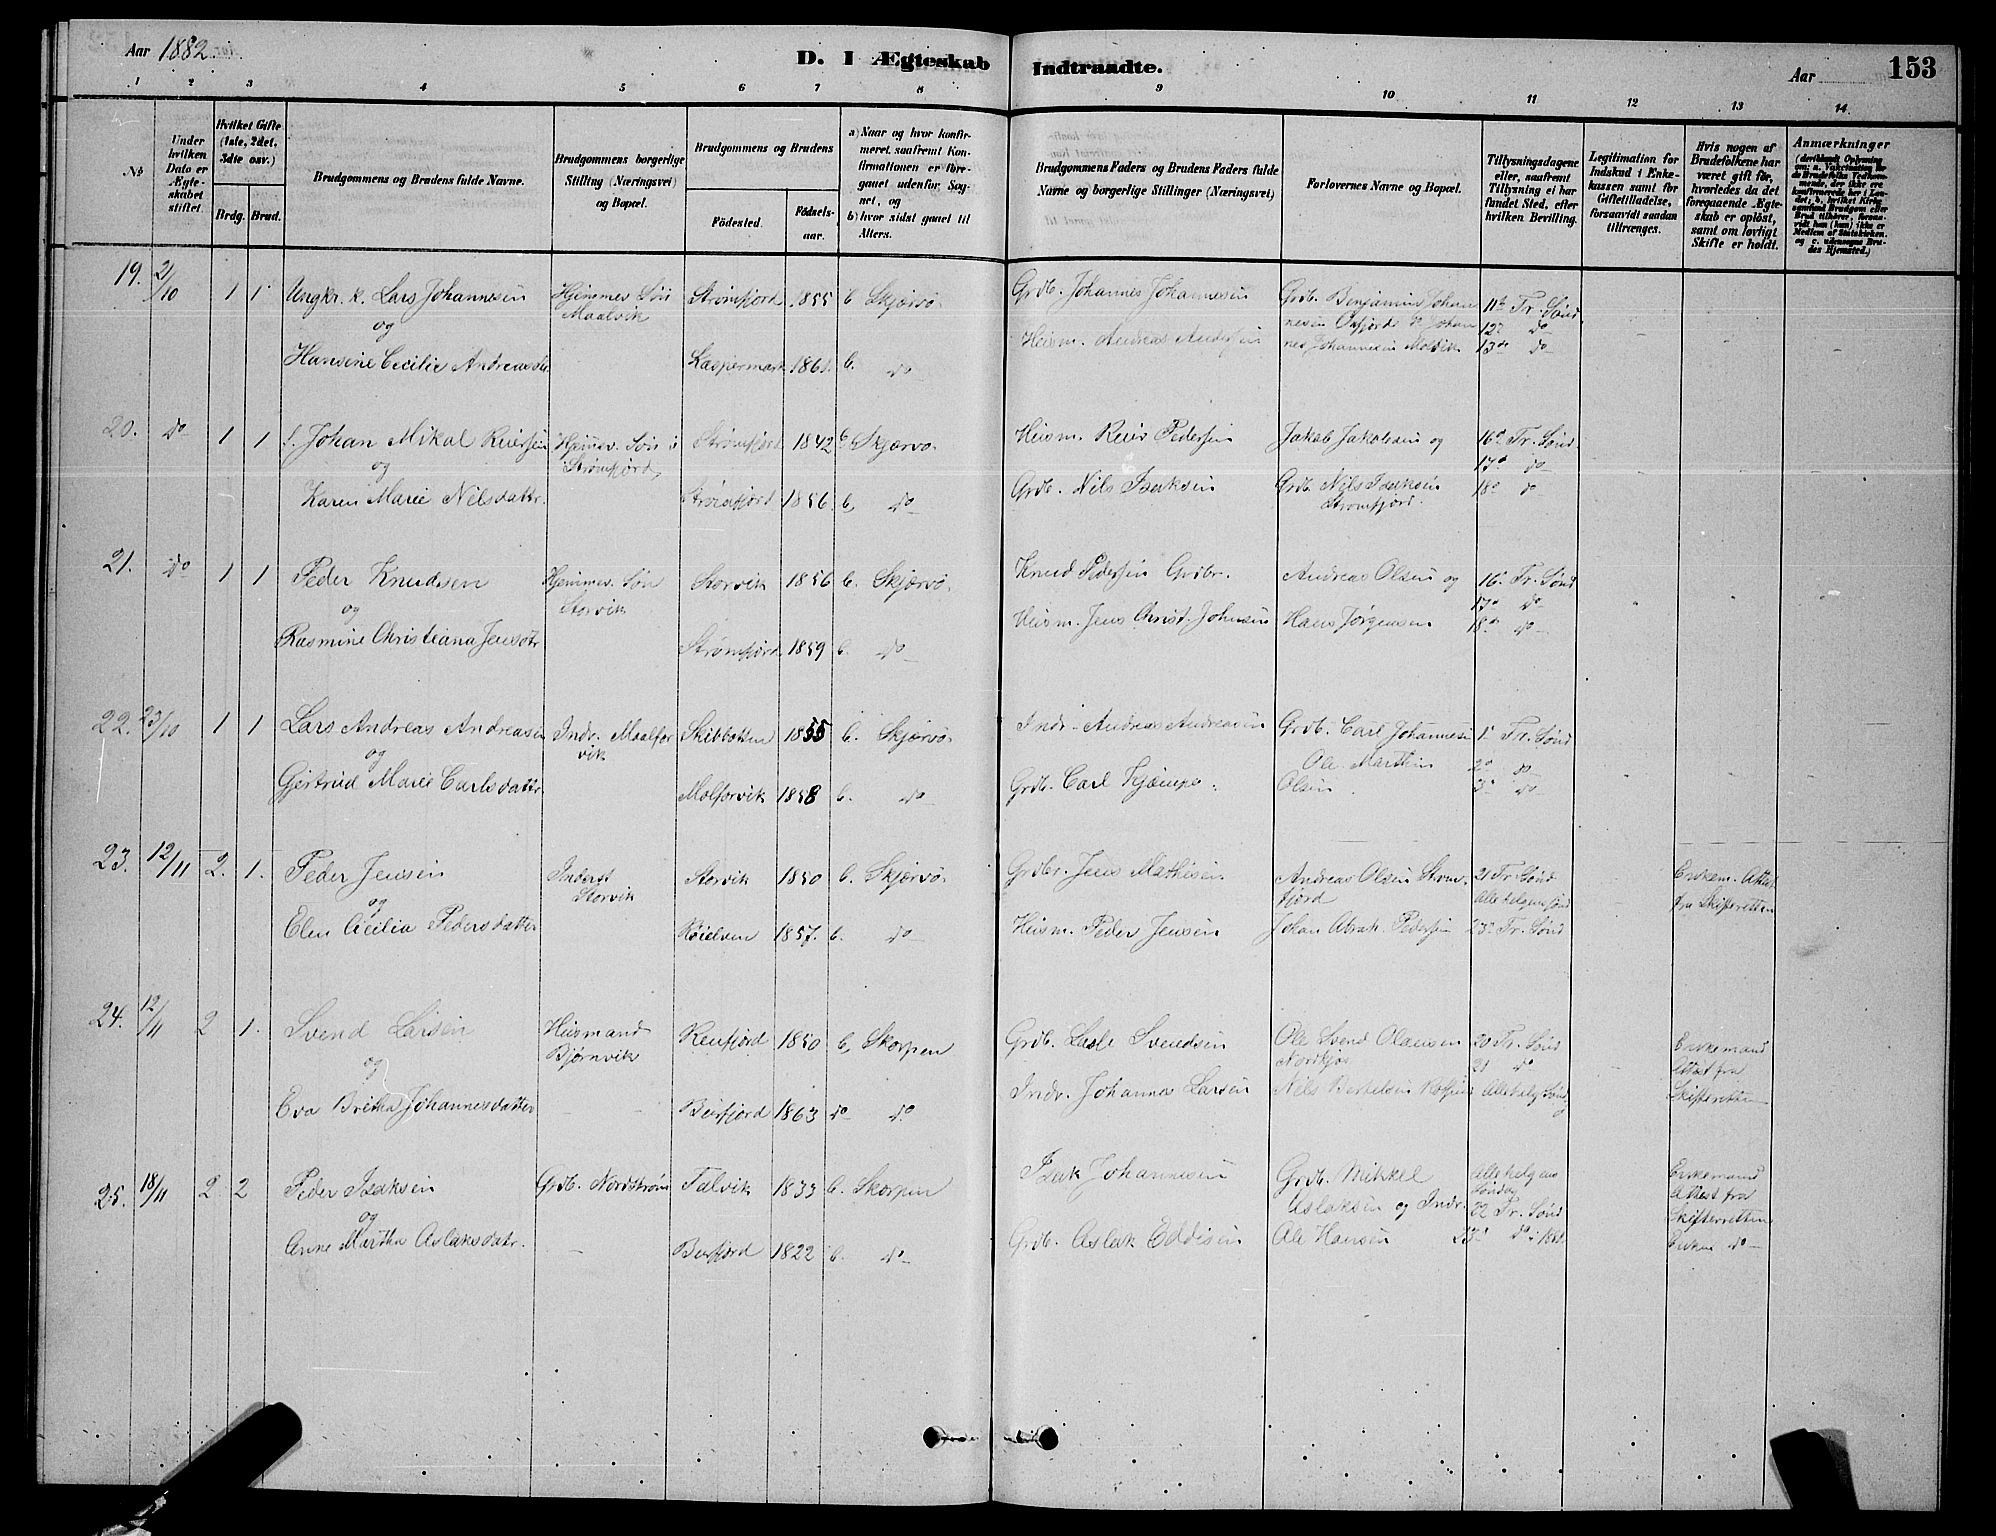 Aar 1882.
D. I Ægteskab Indtraadte.
Aar
153
1 2 3 4 5 6 7 8 9 10 11 12 13 14
No
Under hvilken Dato er Ægteskabet stiftet.
Hvilket Gifte (1ste, 2det, 3die osv.)
Brdg. Brud.
Brudgommens og Brudens fulde Navne.
Brudgommens borgerlige Stilling (Næringsvei) og Bopæl.
Brudgommens og Brudens
Fødested.
Fødselsaar.
a) Naar og hvor konfirmeret, saafremt Konfirmationen er foregaaet udenfor Sognet, og
b) hvor sidst gaaet til Alters.
Brudgommens Faders og Brudens Faders fulde Navne og borgerlige Stillinger (Næringsvei)
Forlovernes Navne og Bopæl.
Tillysningsdagene eller, saafremt Tillysning ei har fundet Sted, efter hvilken Bevilling.
Legitimation for Indskud i Enkekassen samt for Giftetilladelse, forsaavidt saadan tiltrænges.
Hvis nogen af Brudefolkene har været gift før, hvorledes da det foregaaende Ægteskab er opløst, samt om lovligt Skifte er holdt.
Anmærkninger
19. 21/10 1 1 Ungkr. k. Lars Johannesen Hjemmev. Søn Strømfjord 1855 b Skjærvø Grdb. Johannes Johannesen Grdb. Benjamin Johan 11te Tr. Sønd
og Maalvik nesen Oxfjord & Johan 12 do
Hansine Cecilie Andreasdtr Kaspermark 1861. b. do Husm. Andreas Andersen nes Johannesen Molvik 13de do
20. do 1 1 Johan Mikal Reiersen Hjemmev. Søn i Strømfjord 1842 b Skjærvø. Husm. Reier Pedersen Jakob Jakobsen og 16d Tr. Sønd
og Strømfjord, 17d do
Karen Marie Nilsdattr. Strømfjord 1856. b, do Grdb. Nils Isaksen Grdb. Nils Isaksen 18d do
Strømfjord.
21. do 1 1 Peder Knudsen Hjemmev. Søn Storvik 1856 b. Skjærvø. Knud Pedersen Grdbr. Andreas Olsen og 16 Tr. Sønd
og Storvik 17d do
Rasmine Christiana Jensdtr Strømfjord 1859 b. do Husm. Jens Christ. Johnsen Hans Jørgensen 18d do
22. 23/10 1 1 Lars Andreas Andreasen Indr. Maalfor Skibbotten 1855 b. Skjærvø. Indr. Andreas Andreasen Grdb. Carl Johannesen 1 Tr. Sønd
og vik Ole Marthin 2d do
Gjertrud Marie Carlsdattr. Molforvik 1858 b. do Grdb. Carl Kjæmpe. Olsen. 3 do
23. 12/11 2. 1. Peder Jensen Inderst Storvik 1850 b. Skjærvø. Grdbr. Jens Mathisen. Andreas Olsen Strøm 21 Tr. Sønd Enkem. Attest
og Storvik fjord Allehelgensønd fra Skifteretten
Elen Cecilia Pedersdatter Røielven 1857. b. do Husm. Peder Jensen Johan Abrah. Pedersen 23d Tr. Sønd
24. 12/11 2 1. Svend Larsen Husmand Reinfjord 1850 b, Skorpen Grdb. Lasle Svendsen Ole Svend Olausen 20 Tr. Sønd Enkemand
og Bjørnvik Nordkjos 21 do Attest fra
Eva Britha Johannesdatter Burfjord 1863 do do Indr. Johannes Larsen Nils Bertelsen Allehelg Sønd Skifteretten
25. 18/11 2 2 Peder Isaksen Grdb. Nordstrøm Talvik 1833 b. Skorpen Isak Johannesen Grdb. Mikkel Allehelgens Enkemand
Søndag Attest fra
og Aslaksen og Indr. 22 Tr. Sønd Skifteretten
Anne Martha Aslaksdatr. Burfjord 1822 b. do Grdb. Aslak Eddisen Ole Hansen 23d do Enken do